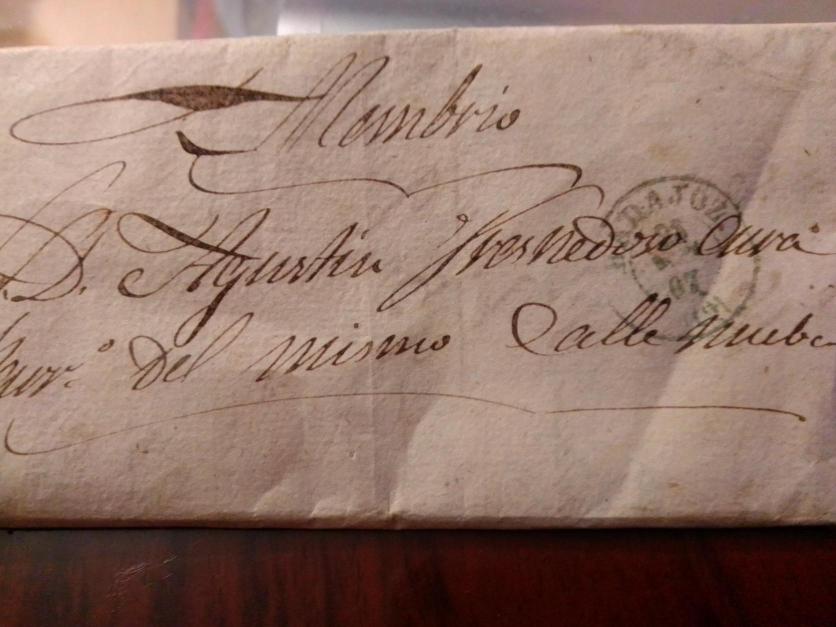 Membrio
D. Agustin Fresnedoso Cura
del mismo Calle Nueba
BADAJOZ
67